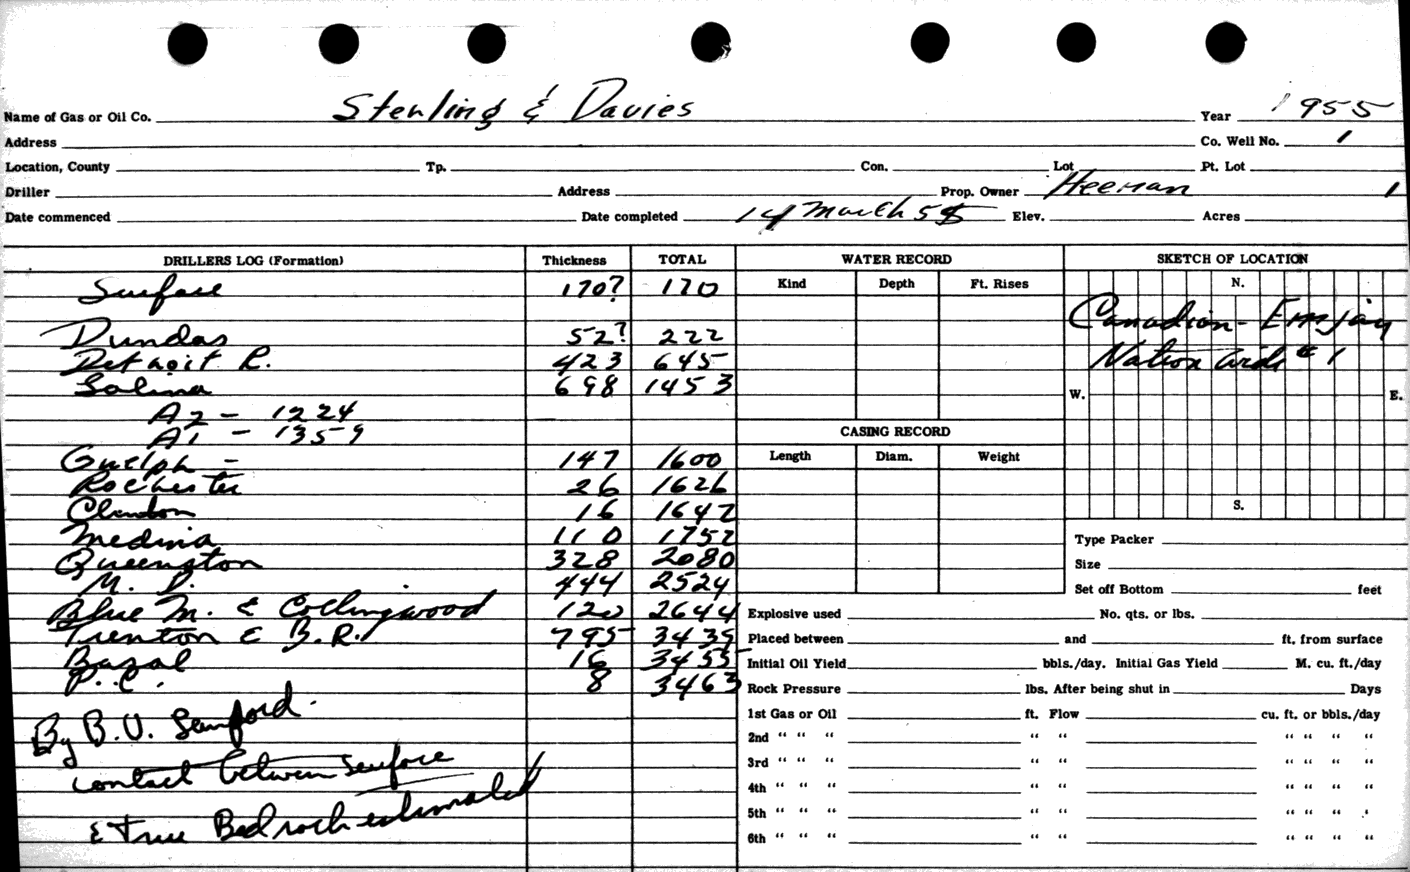 Name of Gas or Oil Co. Sterling & Davies Year 1955
Address Co. Well No. 1
Location, County Tp. Con. Lot Pt. Lot
Driller Address Prop. Owner Heeman 1
Date commenced Date completed 14 March 55 Elev. Acres
DRILLERS LOG (Formation) Thickness TOTAL WATER RECORD SKETCH OF LOCATION
Kind Depth Ft. Rises N.
Surface 170? 170
Canadian - Emjay
Dundas 52? 222
Detroit R. 423 645
Nation Wide #1
Salina 698 1453
W. E.
A2 - 1224
A1 - 1359
CASING RECORD
Length Diam. Weight
Guelph - 147 1600
Rochester 26 1626
Clinton 16 1642
S.
Medina 110 1752
Type Packer
Queenston 328 2080
Size
M. D. 444 2524
Set off Bottom feet
Blue M. & Collingwood 120 2644
Explosive used No. qts. or lbs.
Trenton & B.R. 795 3439
Placed between and ft. from surface
Basal 16 3455
Initial Oil Yield bbls./day. Initial Gas Yield M. cu. ft./day
P.C. 8 3463
Rock Pressure lbs. After being shut in Days
1st Gas or Oil ft. Flow cu. ft. or bbls./day
By B.V. Sanford.
2nd " " " " " " " " "
3rd " " " " " " " " "
contact between surface
4th " " " " " " " " "
& True Bedrock estimated
5th " " " " " " " " '
6th " " " " " " " " "